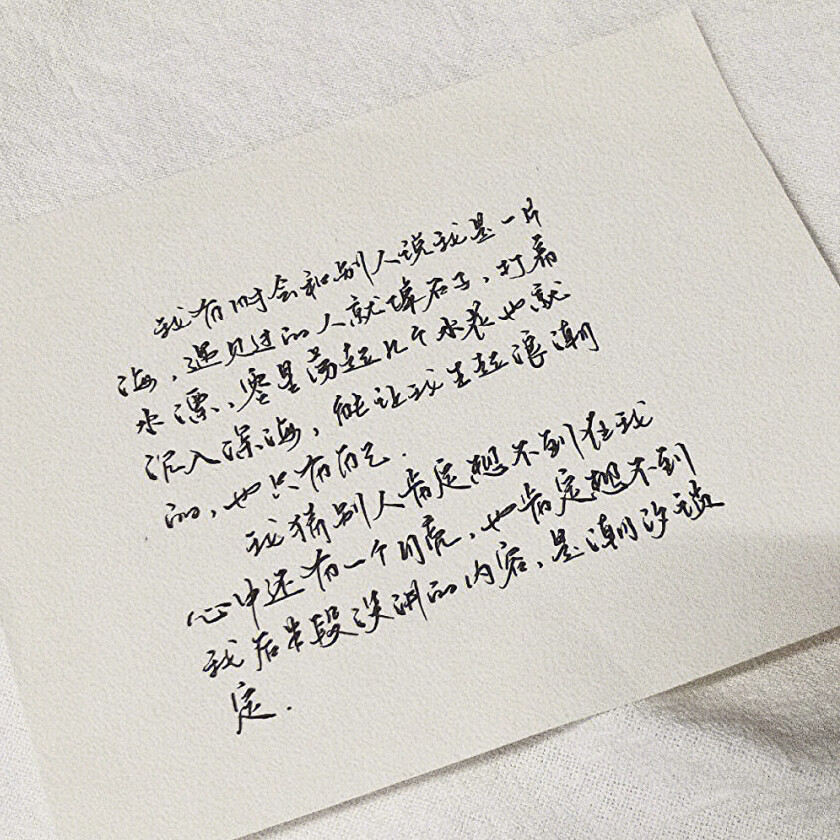 我有时会和别人说我是一片
海,遇见过的人就像石子,打着
水漂、零星荡起几个水花也就
沉入深海,能让我生起浪潮
的,也只有而已.
我猜别人肯定想不到在我
心中还有一个月亮,也肯定想不到
我后半段没讲的内容,是潮汐锁
定.